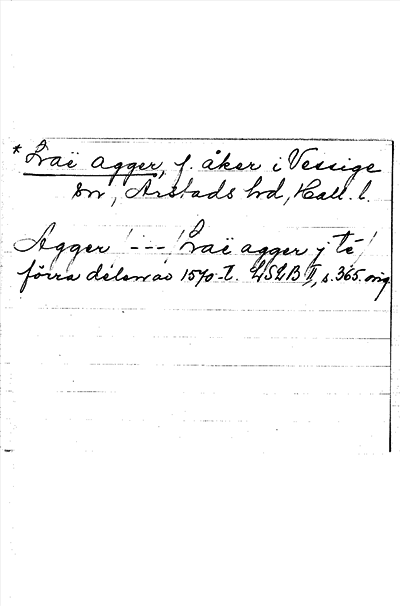 * Lraë agger, f. åker i Vessige
sn, Årstads hd, Hall. l.
Agger /---/ Lraë agger j té/
förra delen av 1570-t. LSLB II, s. 365. orig.